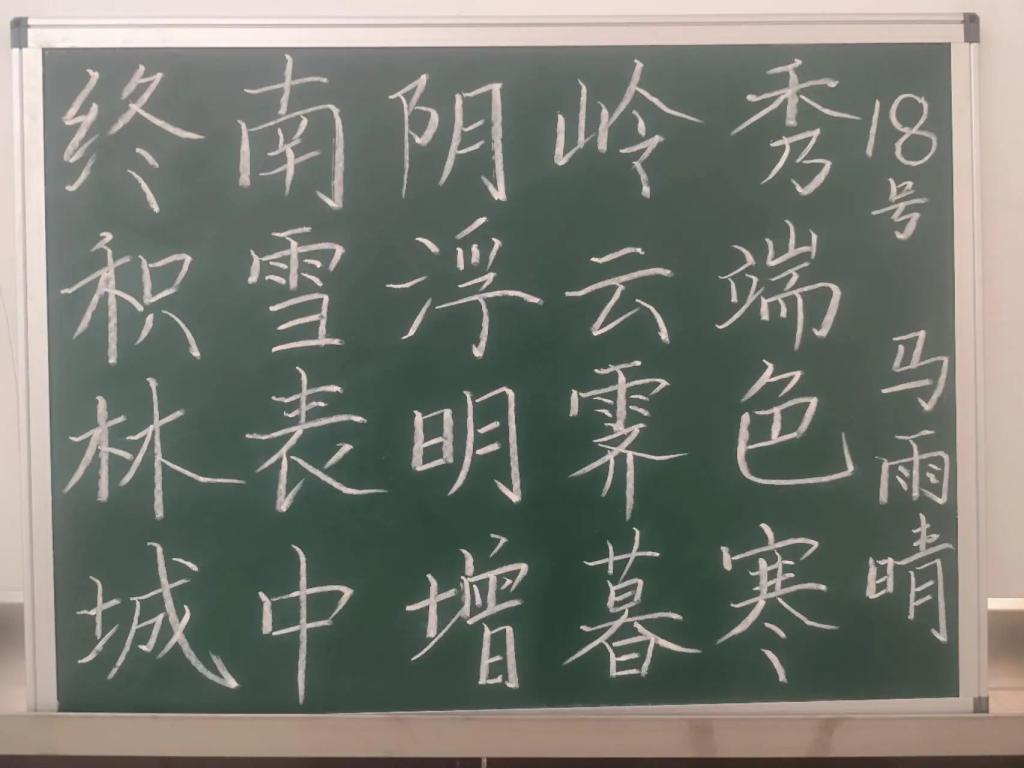 终南阴岭秀
积雪浮云端
林表明霁色
城中增暮寒
18号 马雨晴